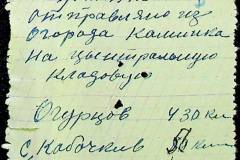 отправляю из
огорода Калинка
на центральную
кладовую
Огурцов 430 кг
с, Кабочков кг